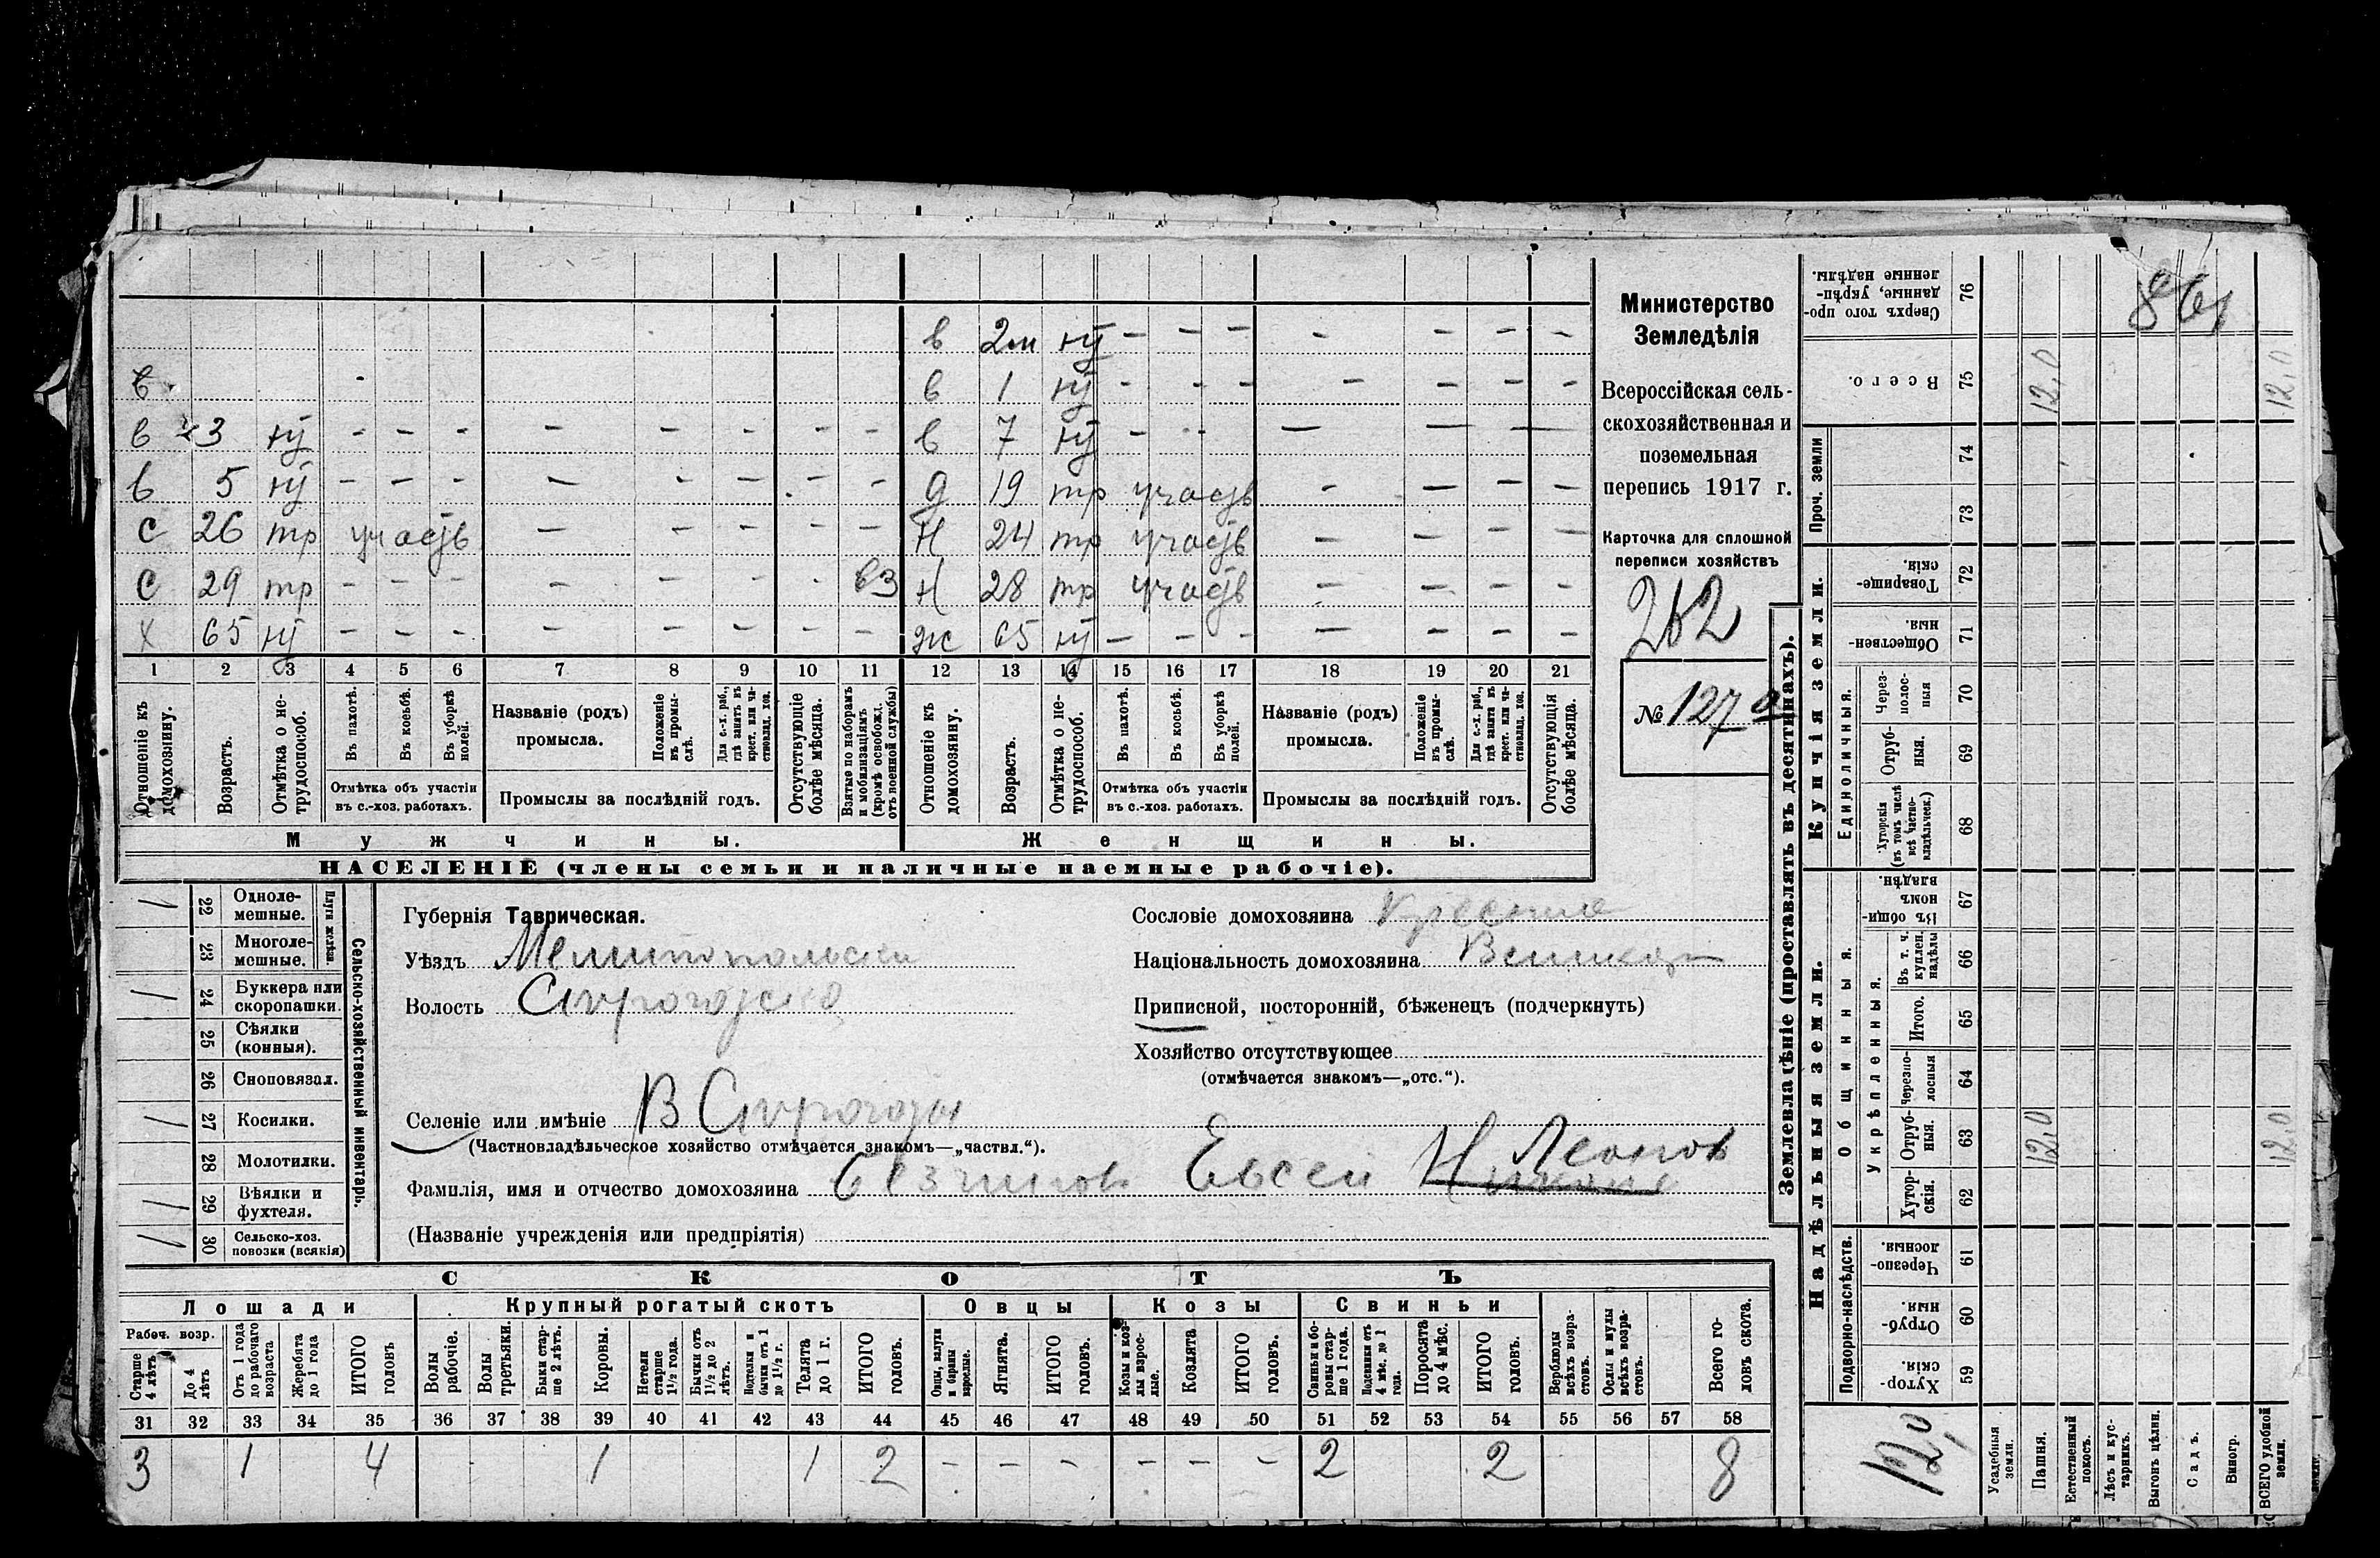 в 2м нў — — — — — — —
в
в 1 нў — — — — — — —
в 3 нў — — — — — — — —
в 7 нў — — — — —
в 5 нў — — — — — — — —
д 19 тр участв — — — —
с 26 тр участв — — — — —
н 24 тр участв — — — —
с 29 тр — — — — — — — вз
н 28 тр участв — — — —
х 65 нў — — — — — — — —
ж 65 нў — — — — — — —
1 2 3 4 5 6 7 8 9 10 11 12 13 14 15 16 17 18 19 20 21
Отношеніе къ домохозяину.
Возрастъ.
Отмѣтка о нетрудоспособ.
Въ пахотѣ.
Въ косьбѣ.
Въ уборкѣ полей.
Отмѣтка объ участіи
въ с.-хоз. работахъ.
Названіе (родъ)
промысла.
Положеніе въ промыслѣ.
Для с.-х. раб., гдѣ занятъ въ крест. или частновлад. хоз.
Промыслы за послѣдній годъ.
Отсутствующіе болѣе мѣсяца.
Взятые по наборамъ и мобилизаціямъ (кромѣ освобожд. отъ военной службы)
Отношеніе къ домохозяину.
Возрастъ.
Отмѣтка о нетрудоспособ.
Въ пахотѣ.
Въ косьбѣ.
Въ уборкѣ полей.
Отмѣтка объ участіи
въ с.-хоз. работахъ.
Названіе (родъ)
промысла.
Положеніе въ промыслѣ.
Для с.-х. раб., гдѣ занята въ крест. или частновлад. хоз.
Промыслы за послѣдній годъ.
Отсутствующія болѣе мѣсяца.
Мужчины.
Женщины.
НАСЕЛЕНІЕ (члены семьи и наличные наемные рабочіе).
Министерство
Земледѣлія
Всероссійская сель-
скохозяйственная и
поземельная
перепись 1917 г.
Карточка для сплошной
переписи хозяйствъ
262
№ 127а
22 Одноле-
мешные.
23 Многоле-
мешные.
Плуги желѣзн.
24 Буккера или
скоропашки.
25 Сѣялки
(конныя).
26 Сноповязал.
27 Косилки.
28 Молотилки.
29 Вѣялки и
фухтеля.
30 Сельско-хоз.
повозки (всякія)
Сельско-хозяйственный инвентарь.
Губернія Таврическая.
Уѣздъ Мелитопольскій
Волость
Селеніе или имѣніе В
(Частновладѣльческое хозяйство отмѣчается знакомъ—„частвл.“).
Фамилія, имя и отчество домохозяина Евсей Леонов
(Названіе учрежденія или предпріятія)
Сословіе домохозяина
Національность домохозяина
Приписной, посторонній, бѣженецъ (подчеркнуть)
Хозяйство отсутствующее
(отмѣчается знакомъ—„отс.“).
СКОТЪ
Лошади
Крупный рогатый скотъ
Овцы
Козы
Свиньи
Рабоч. возр.
Старше 4 лѣтъ
До 4 лѣтъ
Отъ 1 года до рабочаго возраста
Жеребята до 1 года
ИТОГО головъ
Волы рабочіе.
Волы третьяки.
Быки старше 2 лѣтъ.
Коровы.
Нетели старше 1½ года.
Бычки отъ 1½ до 2 лѣтъ.
Подтелки и бычки отъ 1 до 1½ г.
Телята до 1 г.
ИТОГО головъ.
Овцы, валухи и бараны взрослые.
Ягнята.
ИТОГО головъ.
Козы и козлы взрослые.
Козлята
ИТОГО головъ.
Свиньи и боровы старше 1 года.
Подсвинки отъ 4 мѣс. до 1 года.
Поросята до 4 мѣс.
ИТОГО головъ.
Верблюды всѣхъ возрастовъ.
Ослы и мулы всѣхъ возрастовъ.
Всего головъ скота.
31 32 33 34 35 36 37 38 39 40 41 42 43 44 45 46 47 48 49 50 51 52 53 54 55 56 57 58
3 1 4 1 1 2 — — — — — — 2 2 8
Землевладѣніе (проставлять въ десятинахъ).
861
Сверхъ того проданные, укрѣпленные надѣлы. 76
Всего. 75 12,0 12,0
Проч. земли
74
73
Купчія земли.
Товарищескія. 72
Общественныя. 71
Единоличныя.
Черезполосныя 70
Отрубныя. 69
Хуторскія (въ томъ числѣ всѣ частновладѣльческ.) 68
Надѣльныя земли.
Общинныя.
Въ общинномъ владѣн. 67
Укрѣпленныя.
Въ т. ч. куплен. надѣлы 66
Итого. 65
Черезполосныя 64
Отрубныя. 63 12,0 12,0
Хуторскія. 62
Подворно-наслѣдств.
Черезполосныя. 61
Отрубныя. 60
Хуторскія. 59
12,0
Усадебныя земли.
Пашня.
Естественный покосъ.
Лѣсъ и кустарникъ.
Выгонъ цѣлин.
Садъ.
Виногр.
ВСЕГО удобной земли.